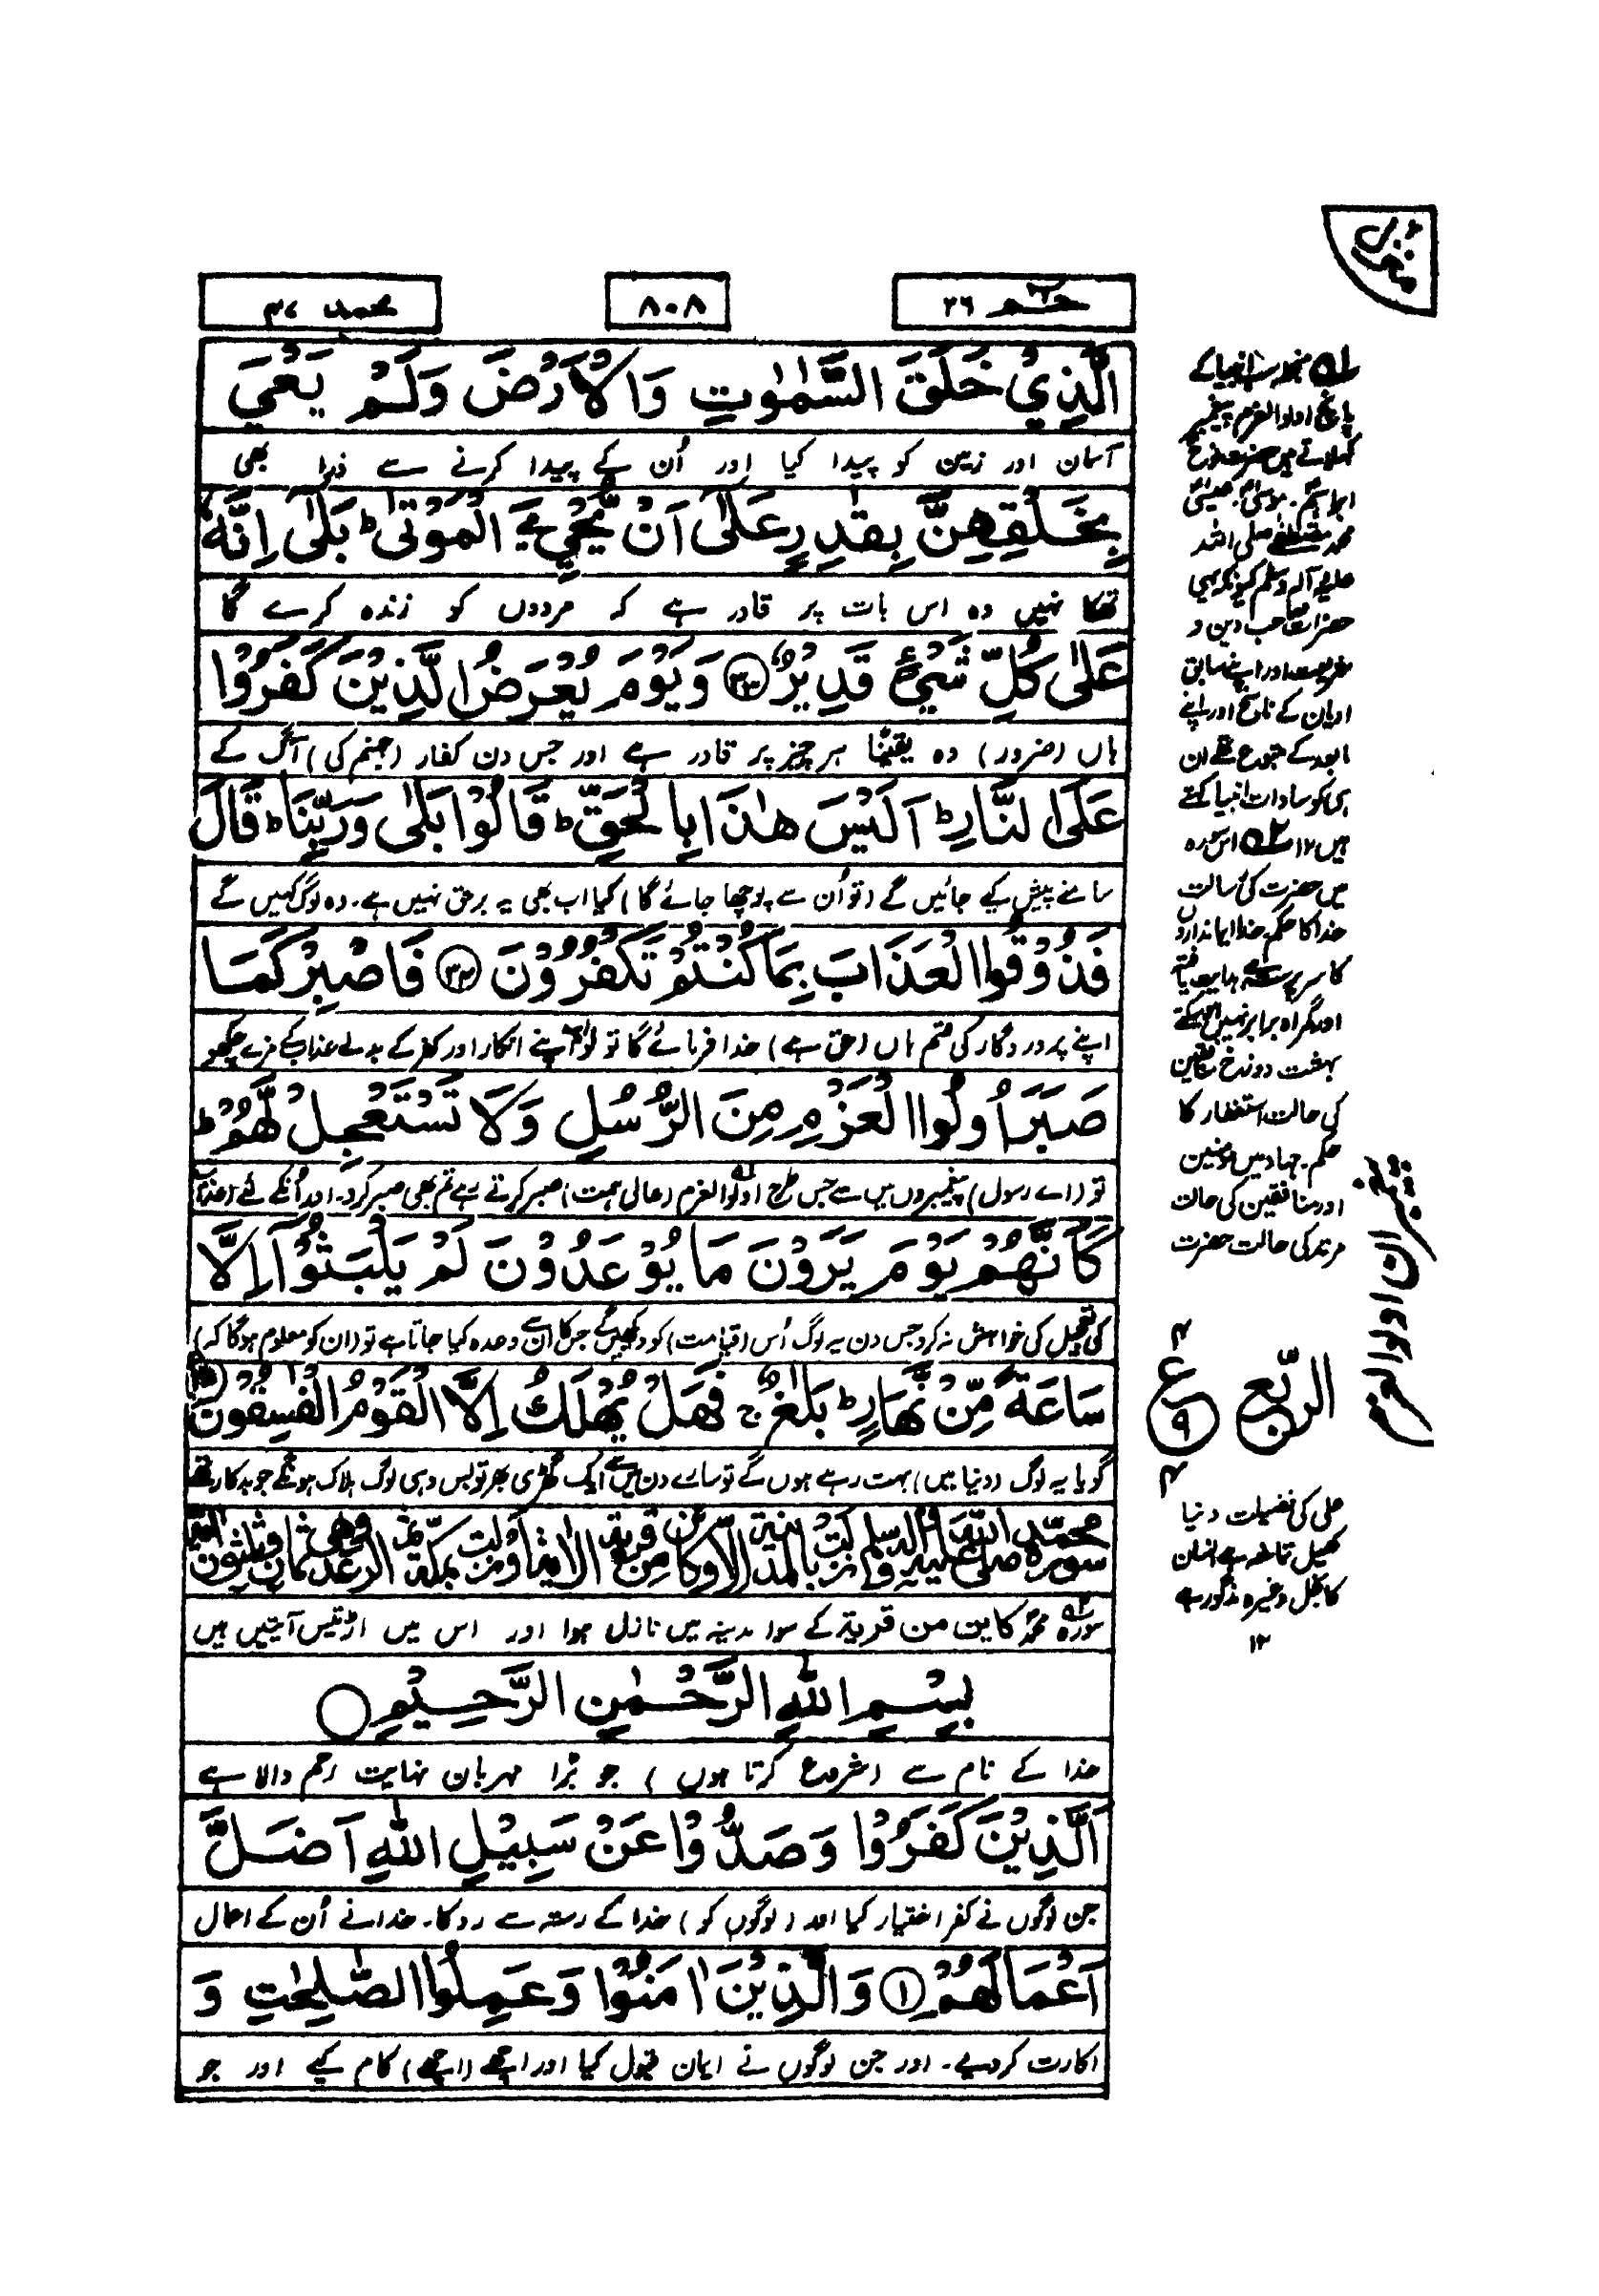 منزل
حٰم ٢٦
٨٠٨
محمد ٤٧
الَّذِيْ خَلَقَ السَّمٰوٰتِ وَالْاَرْضَ وَلَمْ يَعْيَ
آسمان اور زمین کو پیدا کیا اور اُن کے پیدا کرنے سے ذرا بھی
بِخَلْقِهِنَّ بِقٰدِرٍ عَلٰٓى اَنْ يُّحْيِۦَ الْمَوْتٰى ؕ بَلٰٓى اِنَّهٗ
تھکا نہیں وہ اس بات پر قادر ہے کہ مردوں کو زندہ کرے گا
عَلٰى كُلِّ شَيْءٍ قَدِيْرٌ ﴿٣٣﴾ وَيَوْمَ يُعْرَضُ الَّذِيْنَ كَفَرُوْا
ہاں (ضرور) وہ یقیناً ہر چیز پر قادر ہے اور جس دن کفار (جہنم کی) آگ کے
عَلَى النَّارِ ؕ اَلَيْسَ هٰذَا بِالْحَقِّ ؕ قَالُوْا بَلٰى وَرَبِّنَا ؕ قَالَ
سامنے پیش کیے جائیں گے (تو اُن سے پوچھا جائے گا) کیا اب بھی یہ برحق نہیں ہے۔ وہ لوگ کہیں گے
فَذُوْقُوا الْعَذَابَ بِمَا كُنْتُمْ تَكْفُرُوْنَ ﴿٣٤﴾ فَاصْبِرْ كَمَا
اپنے پروردگار کی قسم ہاں (حق ہے) خدا فرمائے گا تو لو اپنے انکار اور کفر کے بدلے عذاب کے مزے چکھو
صَبَرَ اُولُوا الْعَزْمِ مِنَ الرُّسُلِ وَلَا تَسْتَعْجِلْ لَّهُمْ ؕ
تو (اے رسول) پیغمبروں میں سے جس طرح اولوالعزم (عالی ہمت) صبر کرتے رہے تم بھی صبر کرو۔ اور اُنکے لئے (عذاب)
كَاَنَّهُمْ يَوْمَ يَرَوْنَ مَا يُوْعَدُوْنَ لَمْ يَلْبَثُوْٓا اِلَّا
کی تعجیل کی خواہش نہ کرو جس دن یہ لوگ اُس (قیامت) کو دیکھیں گے جس کا ان سے وعدہ کیا جاتا ہے تو (ان کو معلوم ہوگا کہ)
سَاعَةً مِّنْ نَّهَارٍ ؕ بَلٰغٌ ۚ فَهَلْ يُهْلَكُ اِلَّا الْقَوْمُ الْفٰسِقُوْنَ ﴿٣٥﴾
گویا یہ لوگ (دنیا میں) بہت رہے ہوں گے تو سارے دن میں سے ایک گھڑی بھر تو بس وہی لوگ ہلاک ہونگے جو بدکار تھے
سورہ محمد کاین من قریۃ کے سوا مدینہ میں نازل ہوا اور اس میں اڑتیس آیتیں ہیں
بِسْمِ اللهِ الرَّحْمٰنِ الرَّحِيْمِ
خدا کے نام سے (شروع کرتا ہوں) جو بڑا مہربان نہایت رحم والا ہے
اَلَّذِيْنَ كَفَرُوْا وَصَدُّوْا عَنْ سَبِيْلِ اللهِ اَضَلَّ
جن لوگوں نے کفر اختیار کیا اور (لوگوں کو) خدا کے رستہ سے روکا۔ خدا نے اُن کے اعمال
اَعْمَالَهُمْ ﴿١﴾ وَالَّذِيْنَ اٰمَنُوْا وَعَمِلُوا الصّٰلِحٰتِ وَ
اکارت کردیے۔ اور جن لوگوں نے ایمان قبول کیا اور اچھے (اچھے) کام کیے اور جو
منجملہ سب انبیا کے
پانچ اولوالعزم پیغمبر
کہلاتے ہیں حضرت نوحؑ
ابراہیمؑ۔ موسیٰؑ۔ عیسیٰؑ
محمد مصطفےٰ صلی اللہ
علیہ و آلہ وسلم کیونکہ یہی
حضرات صاحب دین و
شریعت اور اپنے سابق
ادیان کے ناسخ اور اپنے
مابعد کے متبوع تھے ان
ہی کو سادات انبیا کہتے
ہیں ١٢ اس سورہ
میں حضرت کی رسالت
خدا کا حکم۔ خدا ایمانداروں
کا سرپرست ہے ہدایت یافتہ
اور گمراہ برابر نہیں ہوسکتے
بہشت دوزخ منافقین
کی حالت استغفار کا
حکم۔ جہاد میں مومنین
اور منافقین کی حالت
مرتد کی حالت حضرت
پیغمبران اولوالعزم
الربع
ع
٤
٩
٤
علی کی فضیلت دنیا
کھیل تماشہ ہے انسان
کا بخل وغیرہ مذکور ہے
١٢